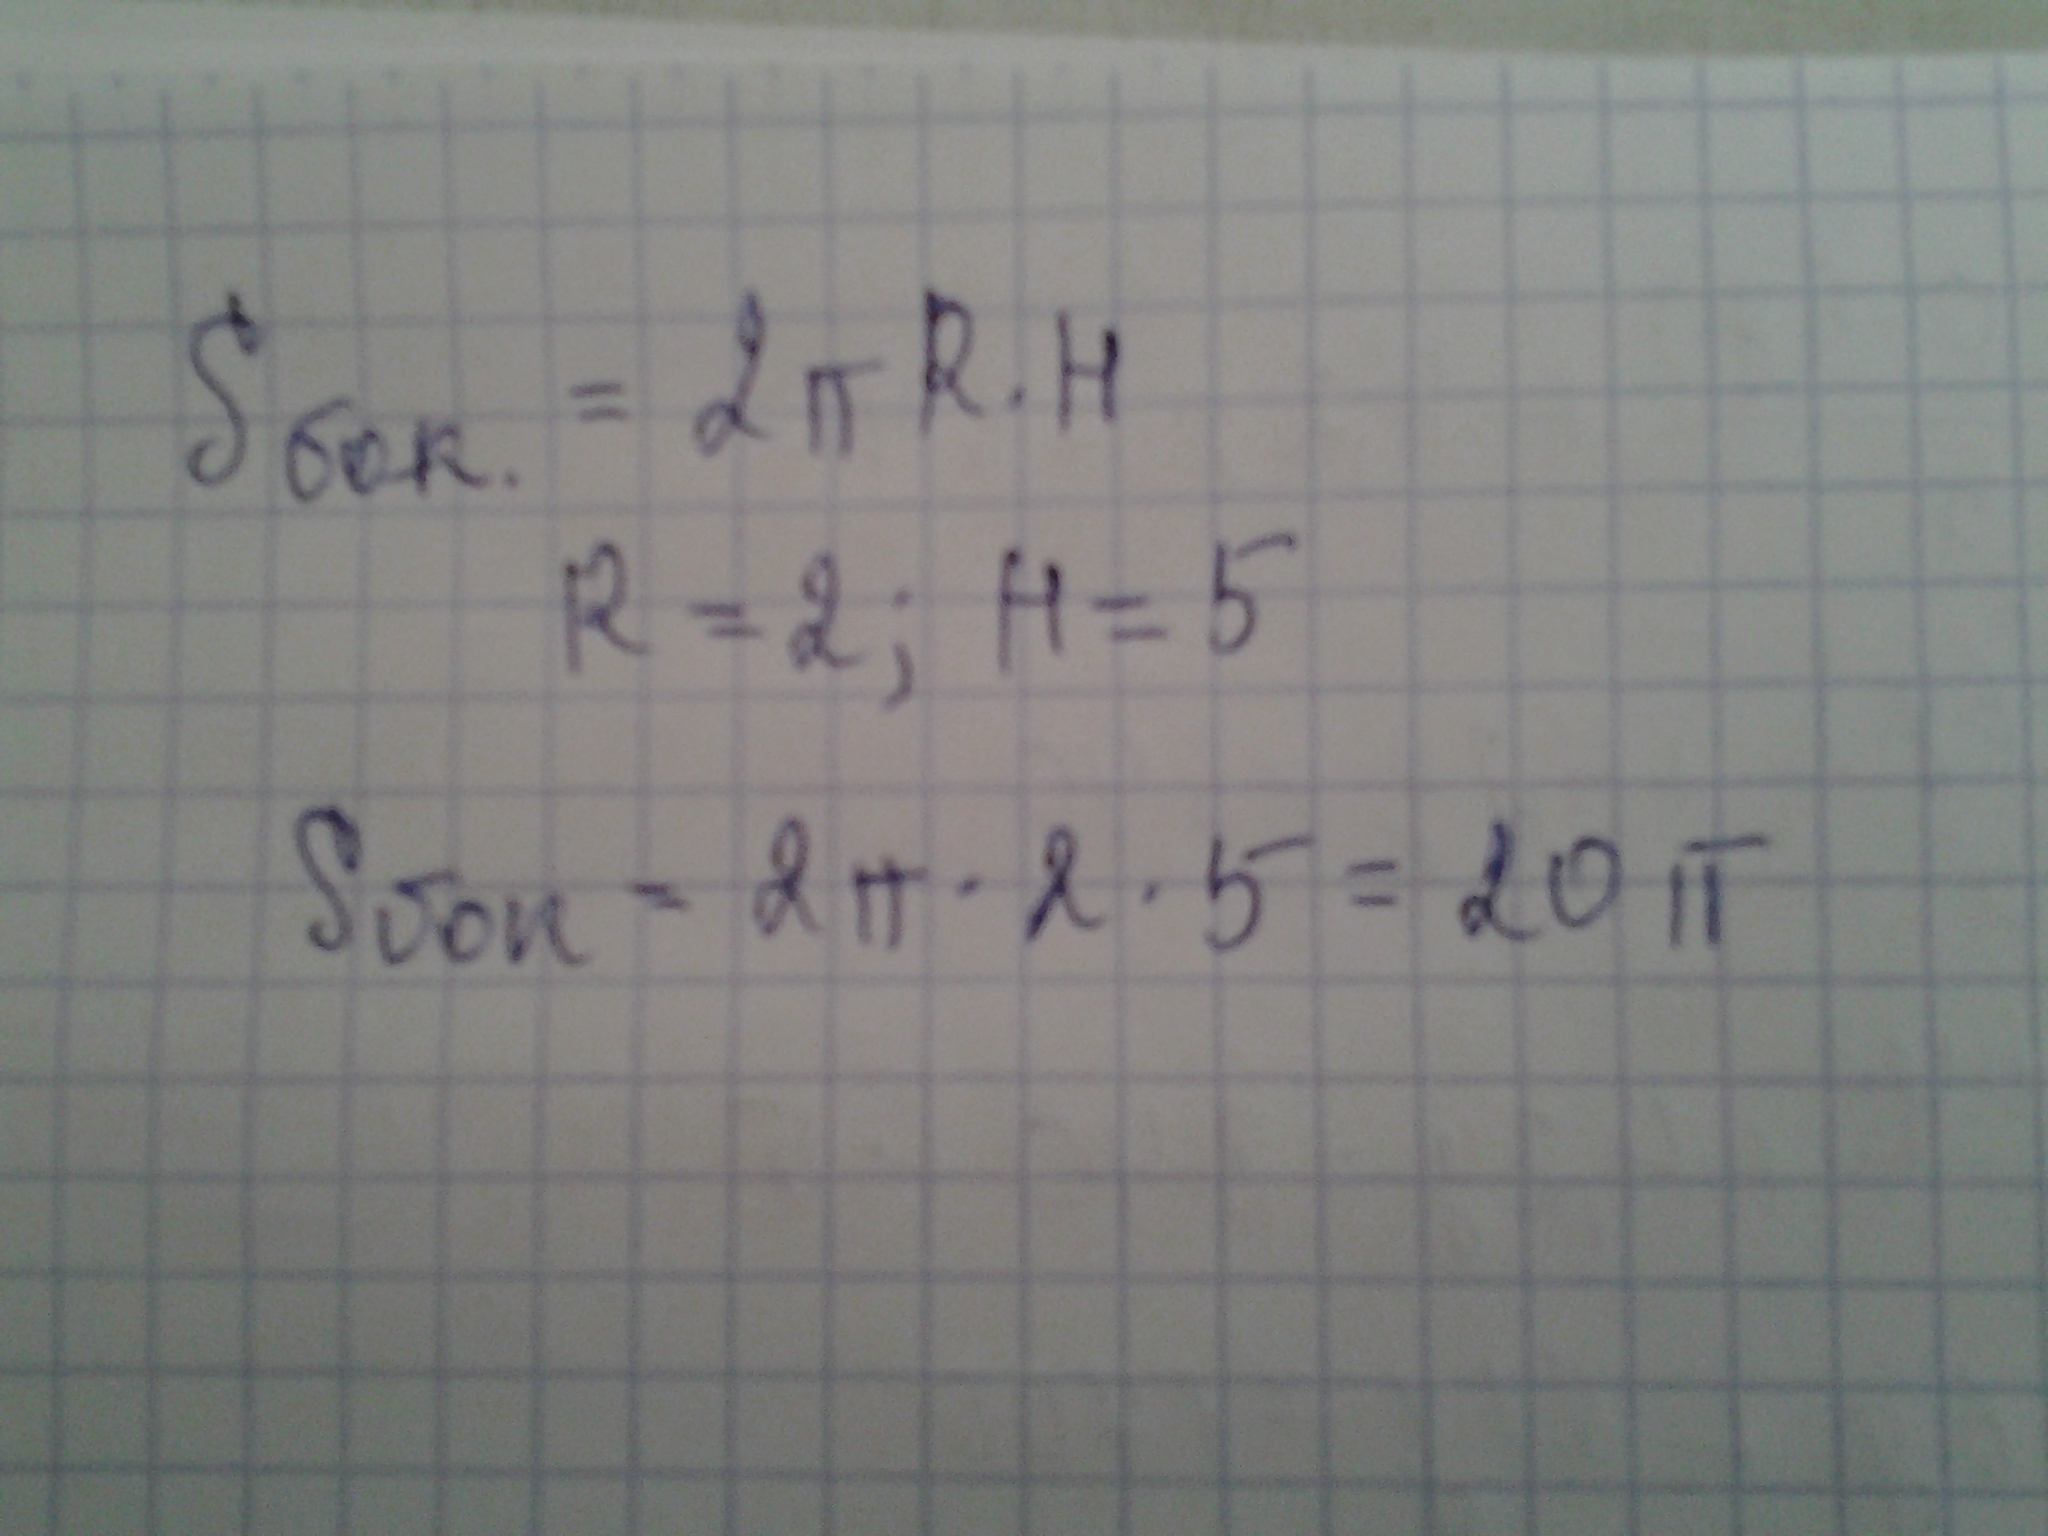 Sбок. = 2π R · H
R = 2; H = 5
Sбок = 2π · 2 · 5 = 20 π